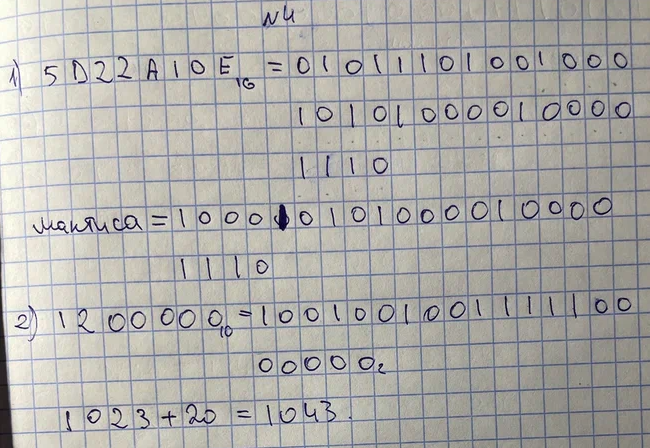 N4
1) 5D22A10E₁₆ = 01011101001000
10101000010000
1110
мантиса = 100010101000010000
1110
2) 1200000₁₀ = 1001001001111100
00000₂
1023 + 20 = 1043.